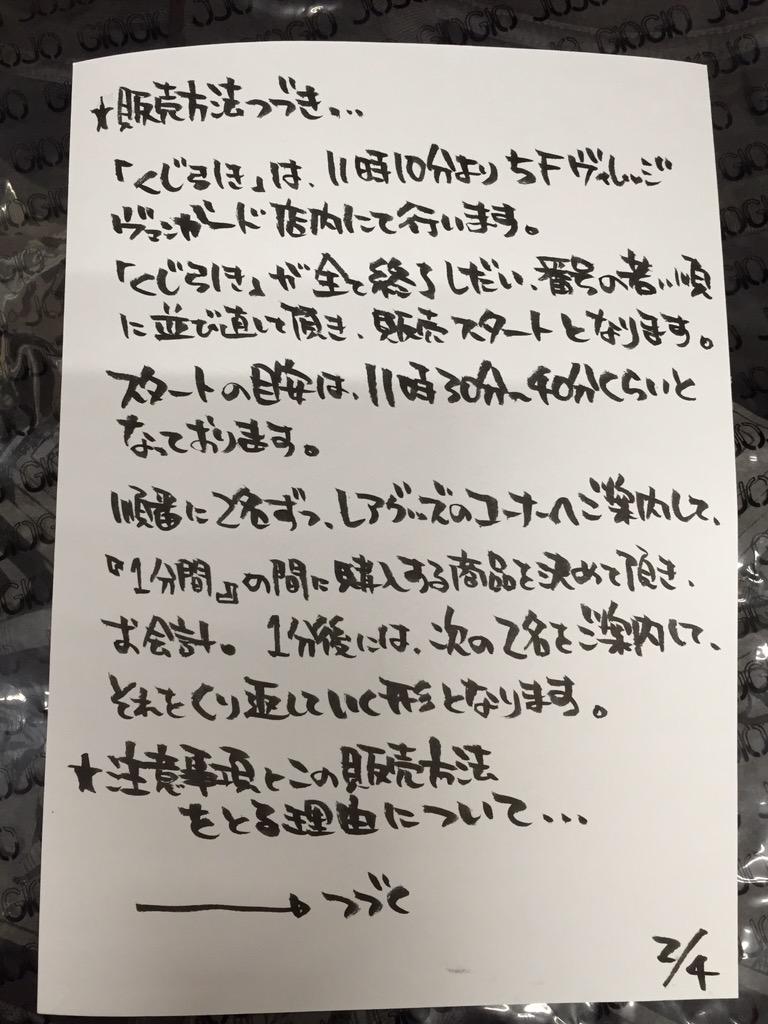 ★販売方法つづき...
「くじ引き」は、11時10分より5Fヴィレッジ
ヴァンガード店内にて行います。
「くじ引き」が全て終了しだい、番号の若い順
に並び直して頂き、販売スタートとなります。
スタートの目安は、11時30分〜40分くらいと
なっております。
順番に2名ずつ、レアグッズのコーナーへご案内して、
『1分間』の間に購入する商品を決めて頂き、
お会計。1分後には、次の2名をご案内して、
それをくり返していく形となります。
★注意事項とこの販売方法
をとる理由について...
→つづく
2/4
GIOGIO
JOJO